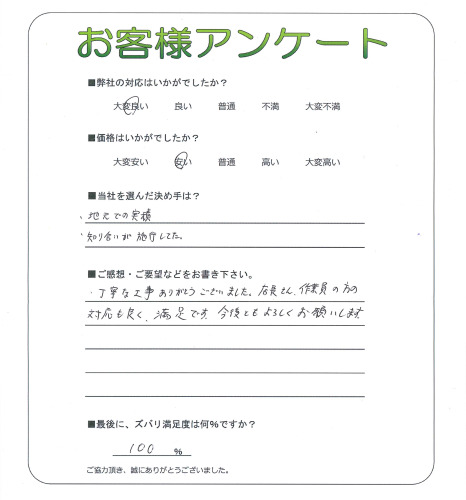 お客様アンケート
■弊社の対応はいかがでしたか？
大変良い 良い 普通 不満 大変不満
■価格はいかがでしたか？
大変安い 安い 普通 高い 大変高い
■当社を選んだ決め手は？
・地元での実績
・知り合いが施行してた。
■ご感想・ご要望などをお書き下さい。
・丁寧な工事ありがとうございました。店長さん、作業員の方の
対応も良く、満足です。今後ともよろしくお願いします
■最後に、ズバリ満足度は何％ですか？
100 ％
ご協力頂き、誠にありがとうございました。